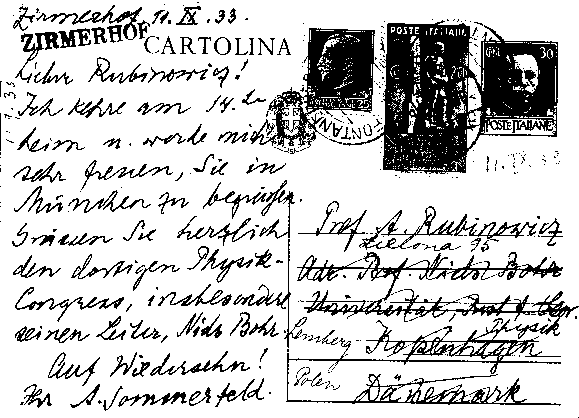 Zirmerhof, 11. IX. 33.
ZIRMERHOF
CARTOLINA
Lieber Rubinowicz!
Ich kehre am 14. da-
heim u. werde mich
sehr freuen, Sie in
München zu begrüssen.
Grüssen Sie herzlich
den dortigen Physik-
Congress, insbesondere
seinen Leiter, Niels Bohr.
Auf Wiedersehn!
Ihr A. Sommerfeld.
POSTE ITALIANE
30
POSTE ITALIANE
FONTANE
11. IX. 33
Prof. A. Rubinowicz
Zielona 95
Adr. Prof. Niels Bohr
Universität, Inst. f. theor.
Physik
Lemberg Kopenhagen
Polen Dänemark